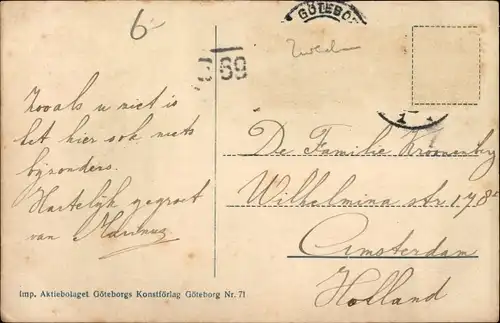 6-
GÖTEBO
Zweden
69
Zooals u niet is
het hier ook niets
bijzonders.
Hartelijk gegroet
van
De Familie Kroonenberg
Wilhelmina str. 178
Amsterdam
Holland
Imp. Aktiebolaget Göteborgs Konstförlag Göteborg Nr. 71